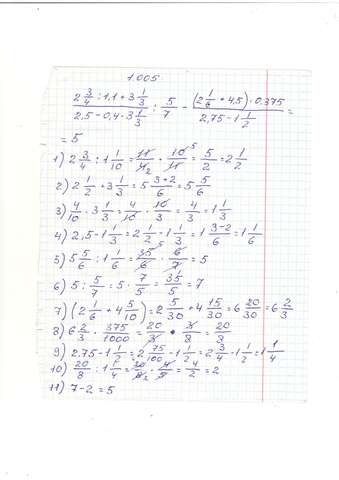 1.005.
(2 3/4 : 1,1 + 3 1/3) / (2,5 - 0,4 · 3 1/3) : 5/7 - ((2 1/6 + 4,5) · 0,375) / (2,75 - 1 1/2) =
= 5
1) 2 3/4 : 1 1/10 = 11/4 2 · 10 5/11 = 5/2 = 2 1/2
2) 2 1/2 + 3 1/3 = 5 (3+2)/6 = 5 5/6
3) 4/10 · 3 1/3 = 4/10 · 10/3 = 4/3 = 1 1/3
4) 2,5 - 1 1/3 = 2 1/2 - 1 1/3 = 1 (3-2)/6 = 1 1/6
5) 5 5/6 : 1 1/6 = 35 5/6 · 6/7 = 5
6) 5 : 5/7 = 5 · 7/5 = 35/5 = 7
7) (2 1/6 + 4 5/10) = 2 5/30 + 4 15/30 = 6 20/30 = 6 2/3
8) 6 2/3 · 375/1000 = 20/3 · 3/8 = 20/8
9) 2,75 - 1 1/2 = 2 75/100 - 1 1/2 = 2 3/4 - 1 1/2 = 1 1/4
10) 20/8 : 1 1/4 = 20/8 2 · 4/5 = 4/2 = 2
11) 7 - 2 = 5